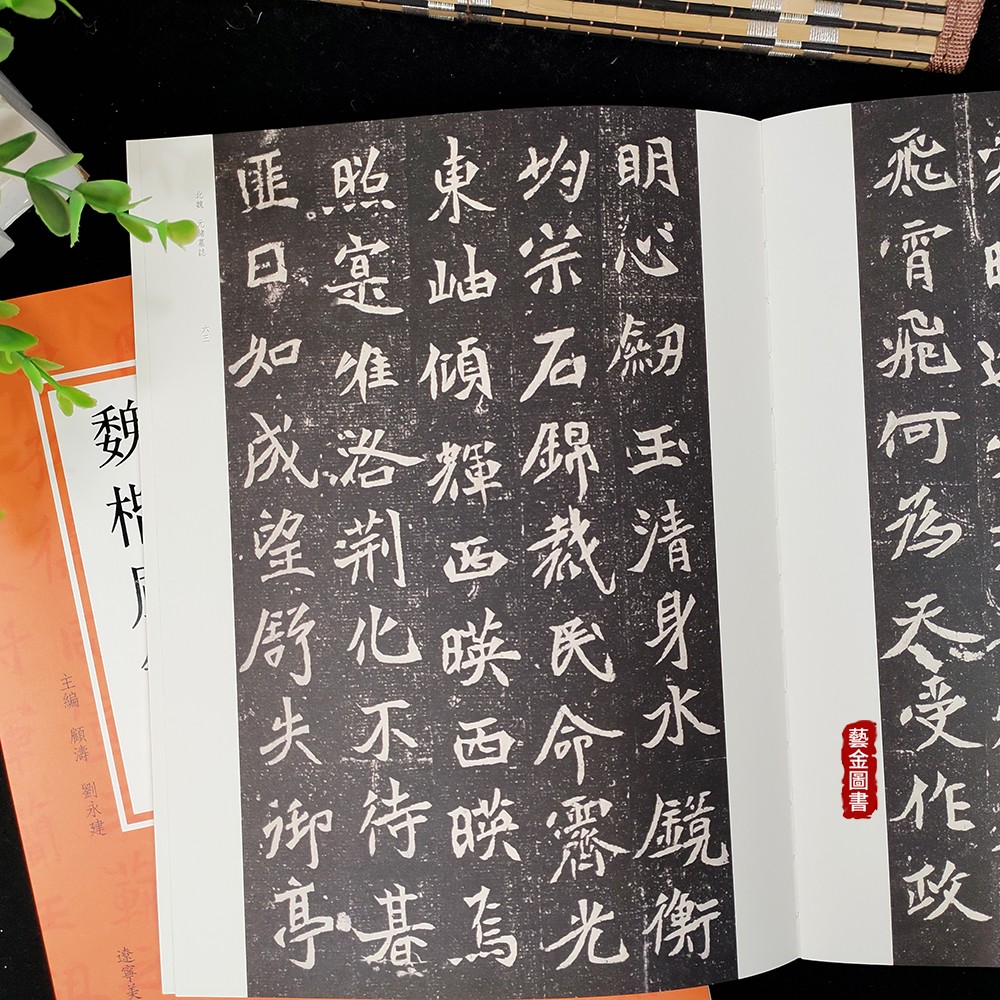 飛霄飛何為天受作政
明心劒玉清身水鏡衡
均崇石錦裁民命霽光
東岫傾輝西暎西暎焉
照寔惟洛荊化不待朞
匪日如成望舒失御亭
北魏 元緒墓誌
六三
魏楷
主編 顧濤 劉永建
遼寧美
藝金圖書